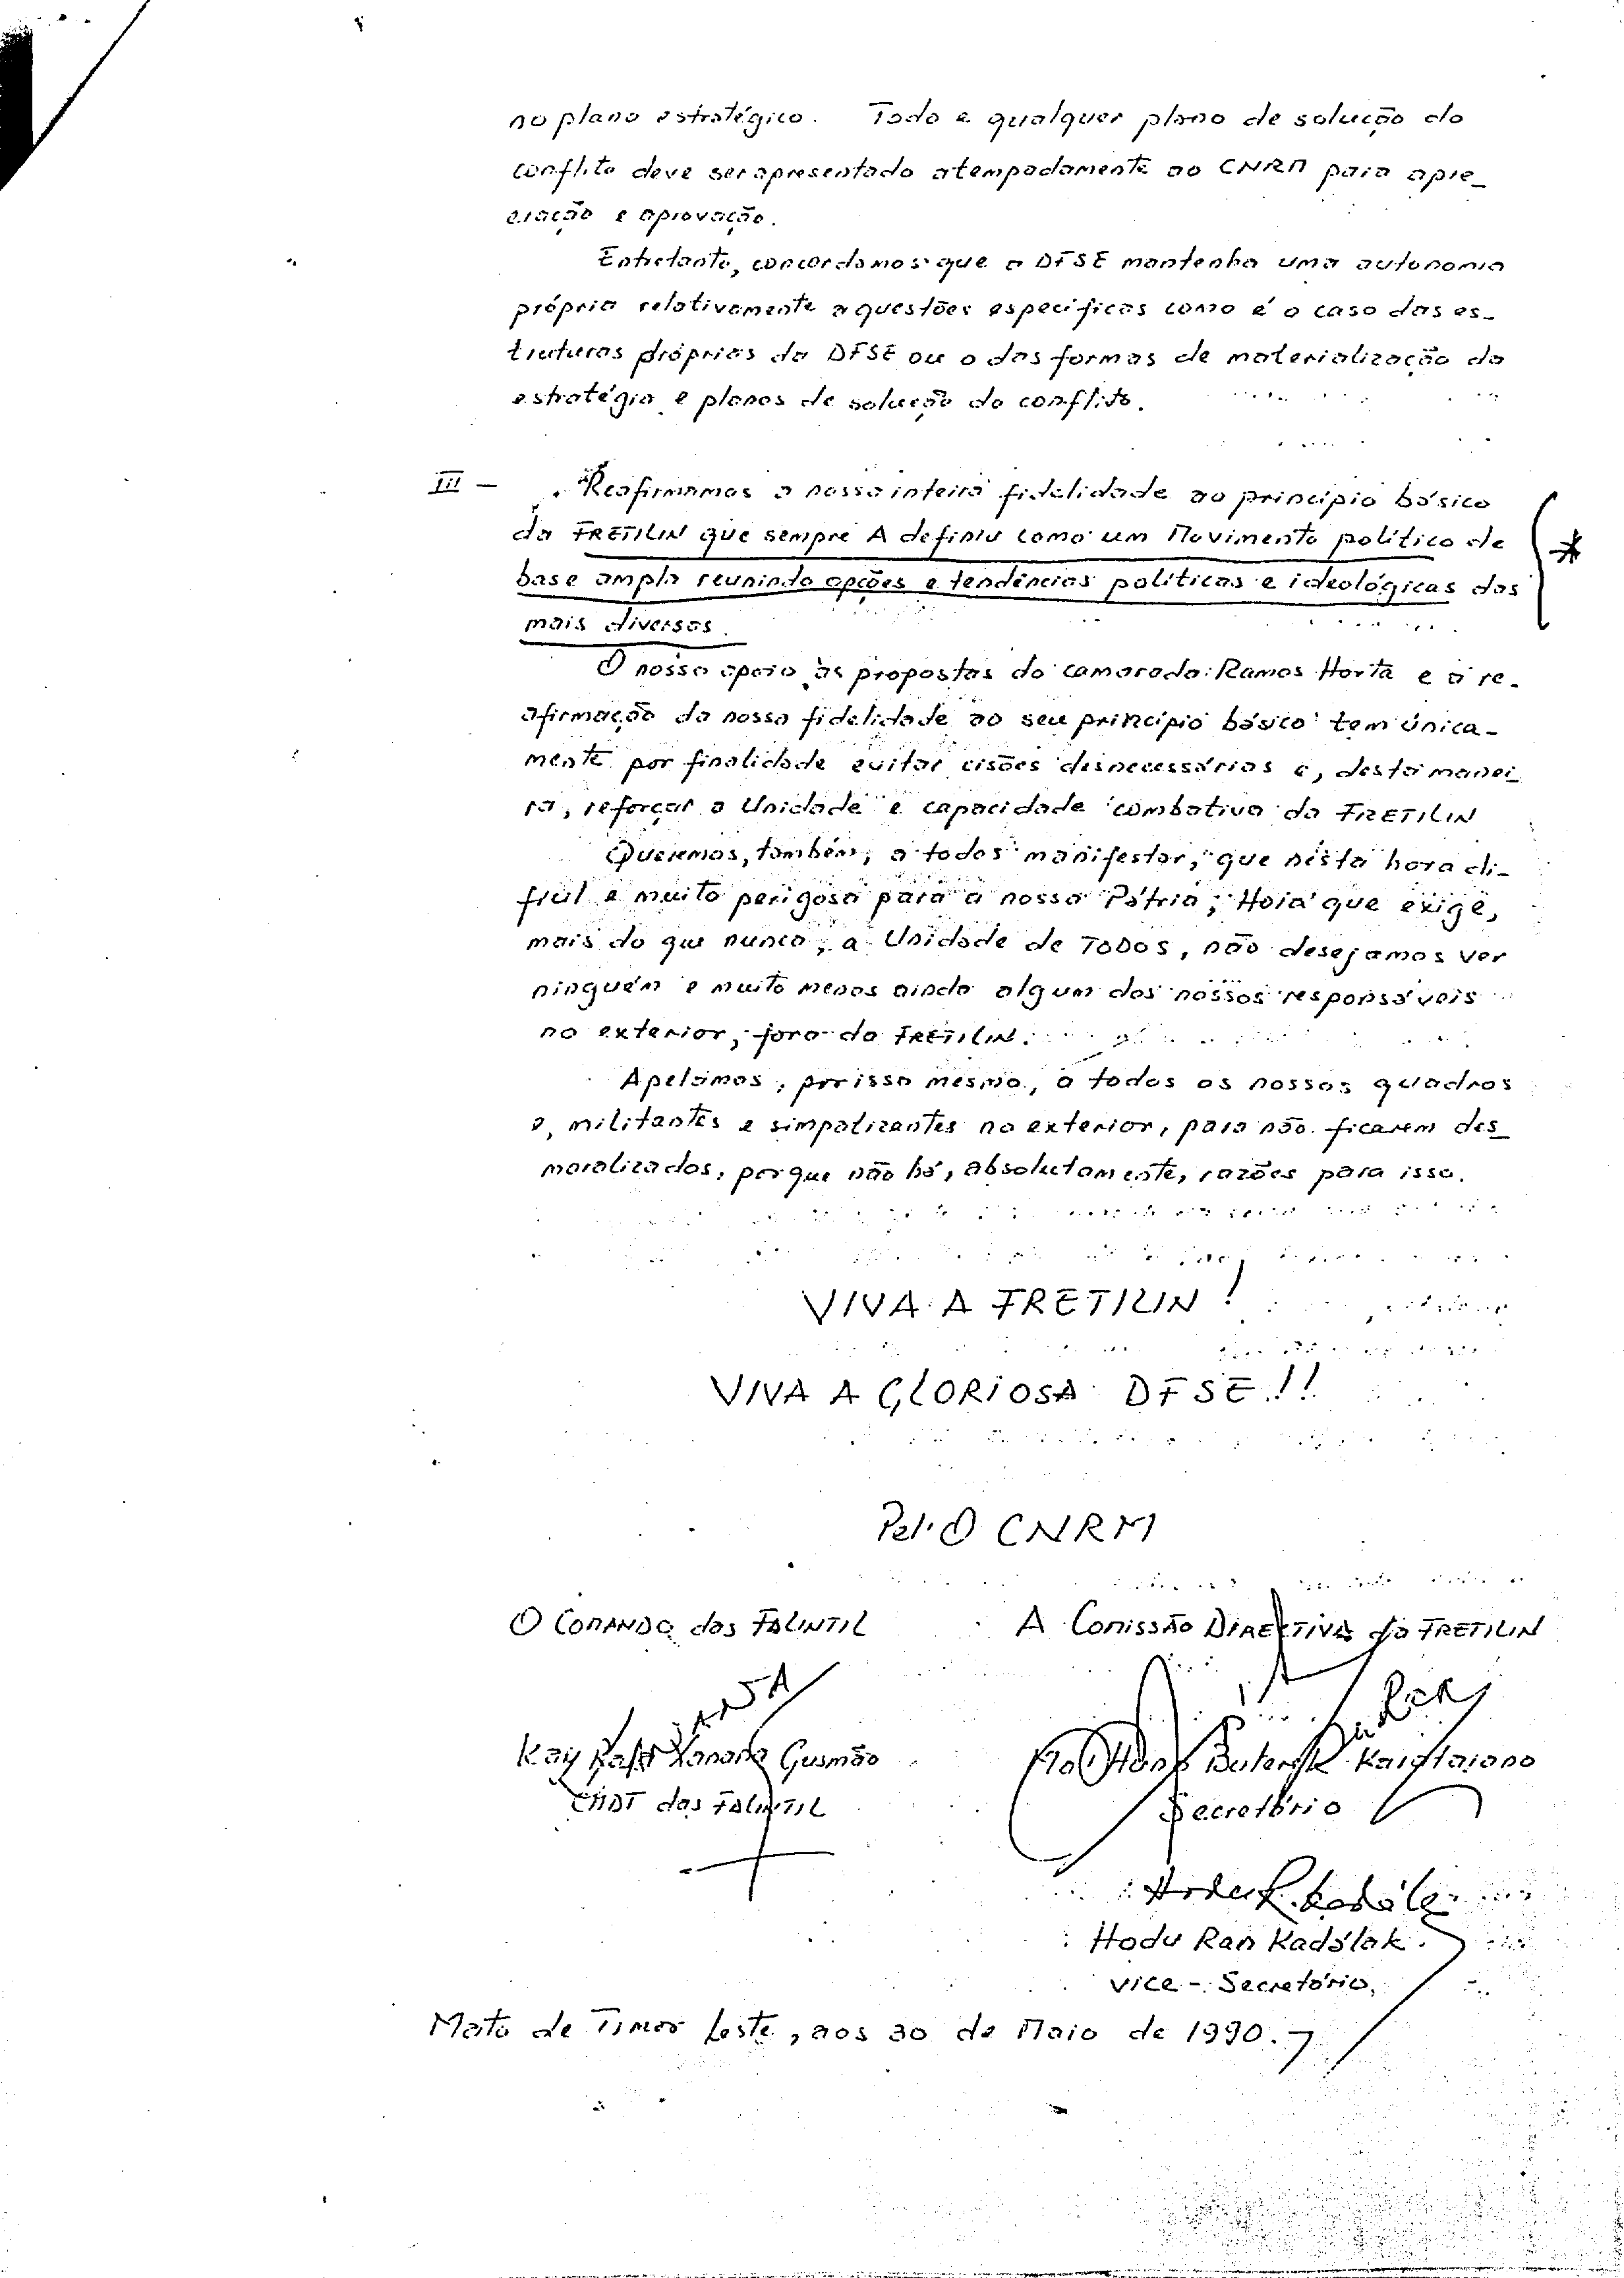 no plano estratégico. Todo e qualquer plano de solução do
conflito deve ser apresentado atempadamente ao CNRM para apre_
ciação e aprovação.
Entretanto, concordamos que a DFSE mantenha uma autonomia
própria relativamente a questões específicas como é o caso das es_
truturas próprias da DFSE ou o das formas de materialização da
estratégia e planos de solução do conflito.
III – Reafirmamos a nossa inteira fidelidade ao princípio básico
da FRETILIN que sempre A definiu como um Movimento político de
base ampla reunindo opções e tendências políticas e ideológicas das
mais diversas.
O nosso apoio às propostas do camarada Ramos Horta e a re_
afirmação da nossa fidelidade ao seu princípio básico tem única_
mente por finalidade evitar cisões desnecessárias e, desta manei_
ra, reforçar a Unidade e capacidade combativa da FRETILIN
Queremos, também, a todos manifestar, que nesta hora di_
fícil e muito perigosa para a nossa Pátria, Hora que exige,
mais do que nunca, a Unidade de TODOS, não desejamos ver
ninguém e muito menos ainda algum dos nossos responsáveis
no exterior, fora da FRETILIN.
Apelamos, por isso mesmo, a todos os nossos quadros
e, militantes e simpatizantes no exterior, para não ficarem des_
moralizados, porque não há, absolutamente, razões para isso.
VIVA A FRETILIN!
VIVA A GLORIOSA DFSE!!
Pel'O CNRM
O COMANDO das FALINTIL A COMISSÃO DIRECTIVA da FRETILIN
Kay Rala Xanana Gusmão
CMDT das FALINTIL Secretário
Hodu Ran Kadalak
Vice - Secretário,
Mato de Timor Leste, aos 30 de Maio de 1990.